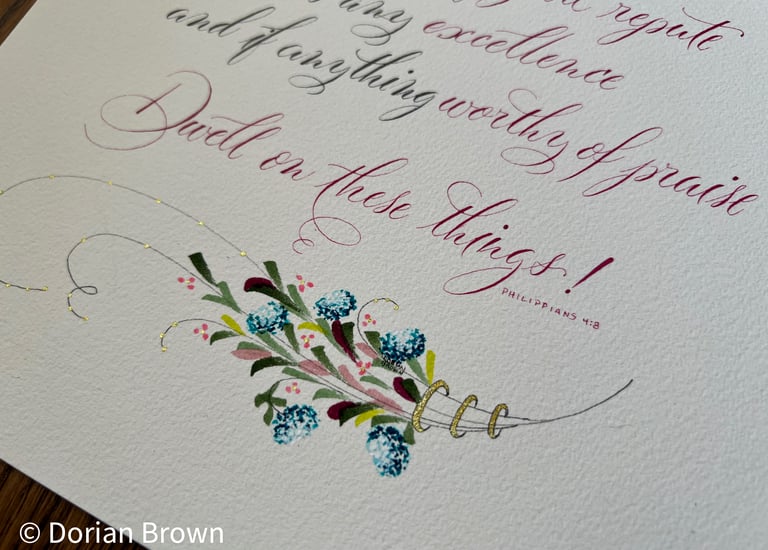 repute
any excellence
and if anything worthy of praise
Dwell on these things!
PHILIPPIANS 4:8
© Dorian Brown